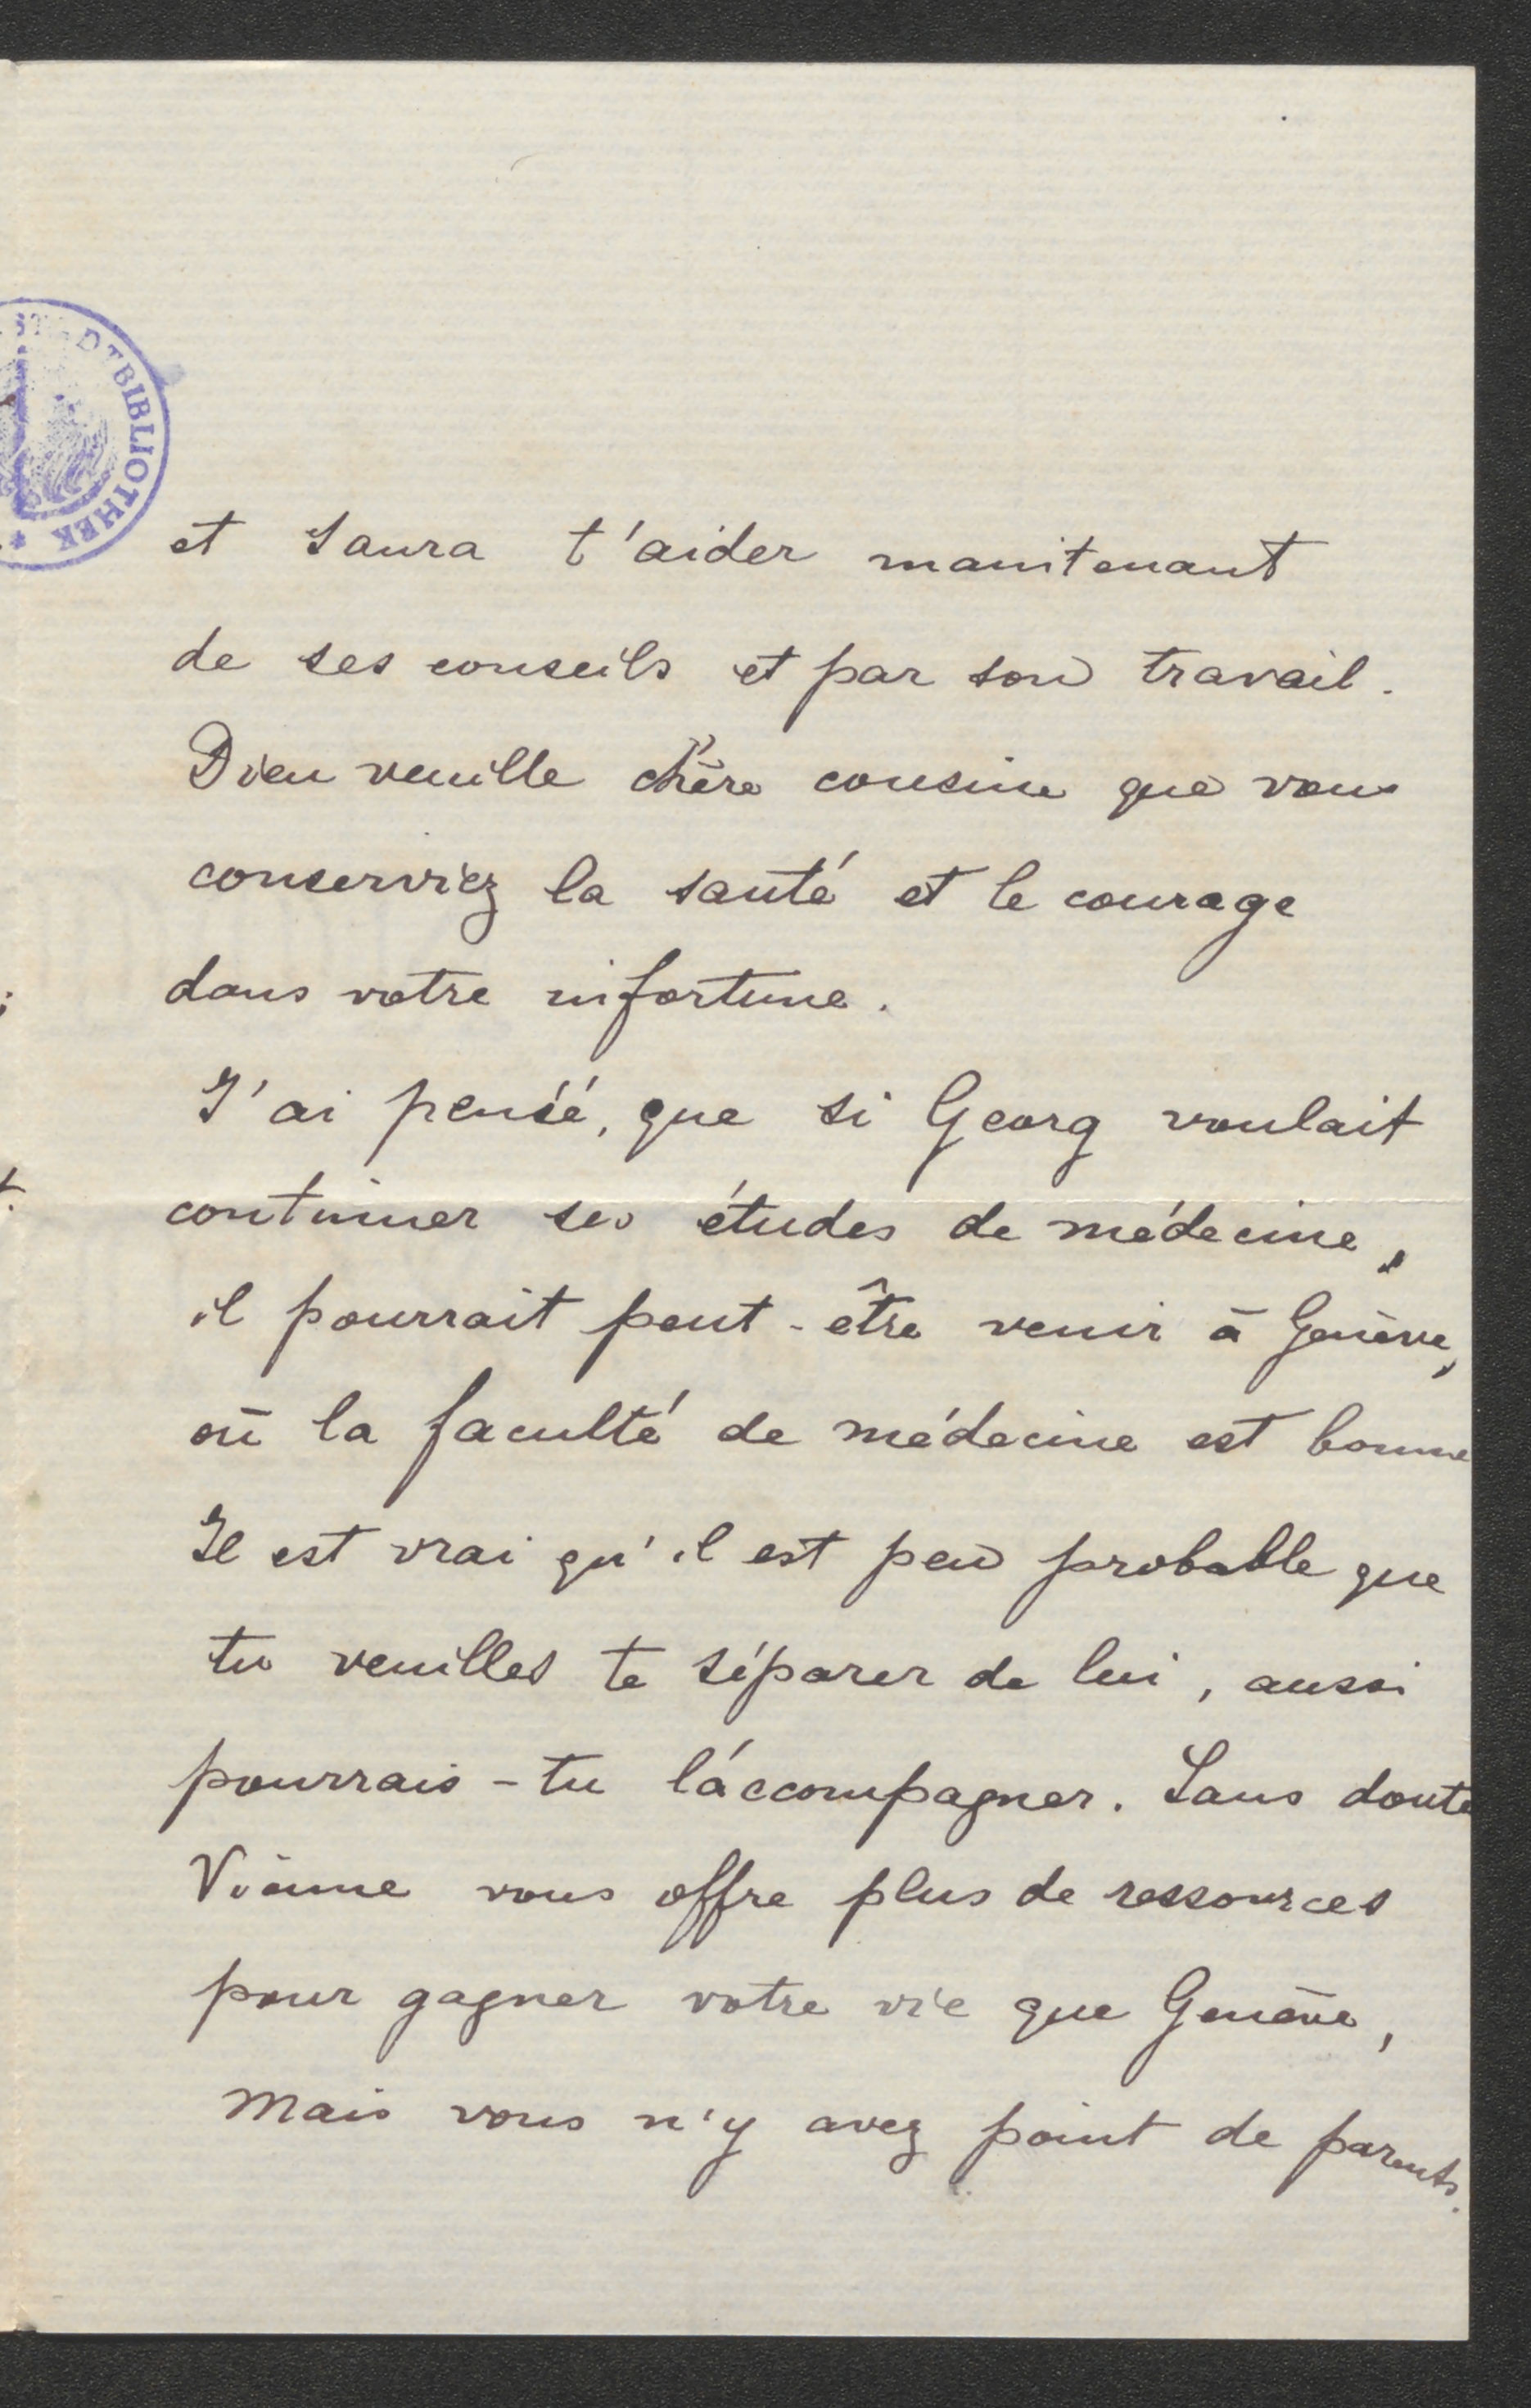 STADTBIBLIOTHEK *
et saura t'aider maintenant
de ses conseils et par son travail.
Dieu veuille chère cousine que vous
conserviez la santé et le courage
dans votre infortune.
J'ai pensé, que si Georg voulait
continuer ses études de médecine,
il pourrait peut-être venir à Genève,
où la faculté de médecine est bonne
Il est vrai qu'il est peu probable que
tu veuilles te séparer de lui, aussi
pourrais-tu l'áccompagner. Sans doute
Vienne vous offre plus de ressources
pour gagner votre vie que Genève,
mais vous n'y avez point de parents.